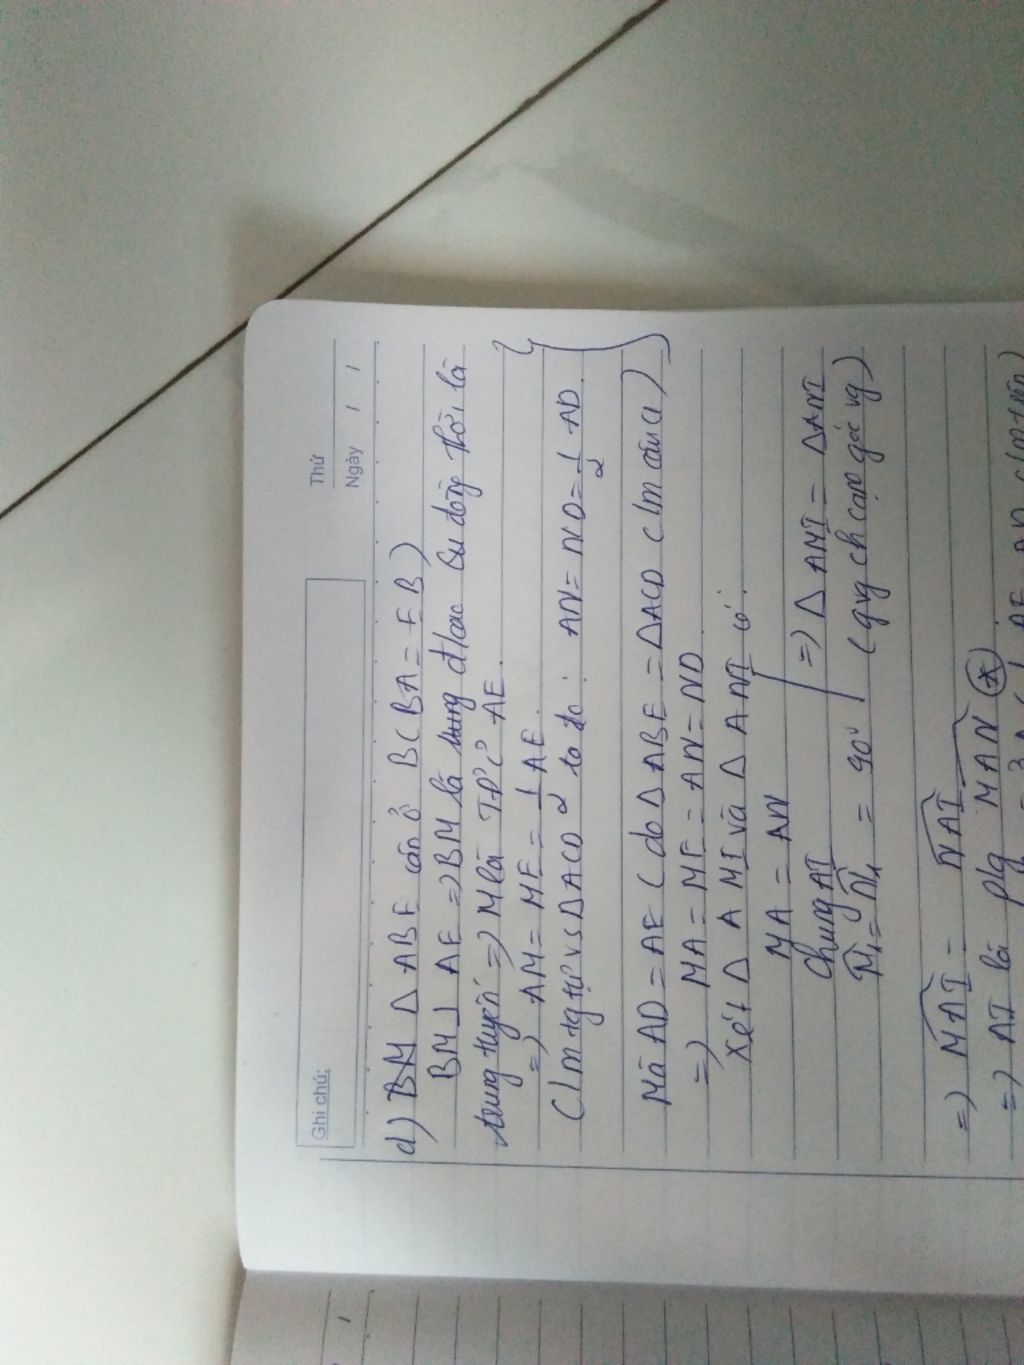 Ghi chú:
Thứ
Ngày / /
d) BM Δ ABE cân ở B (BA = EB)
BM ⊥ AE => BM là đường cao đồng thời là
trung tuyến => M là TĐ AE.
=> AM = ME = 1/2 AE.
(Cm tg tự vs Δ ACD ta đc: AN = ND = 1/2 AD.
Mà AD = AE (do Δ ABE = Δ ACD (cm câu a)
=> MA = ME = AN = ND
Xét Δ AMI và Δ ANI có:
MA = AN
chung AI
M̂₁ = N̂₁ = 90°
=> Δ AMI = Δ ANI
(gvg ch cạnh góc vg)
=> MAI = NAI
=> AI là p/g MAN (*)